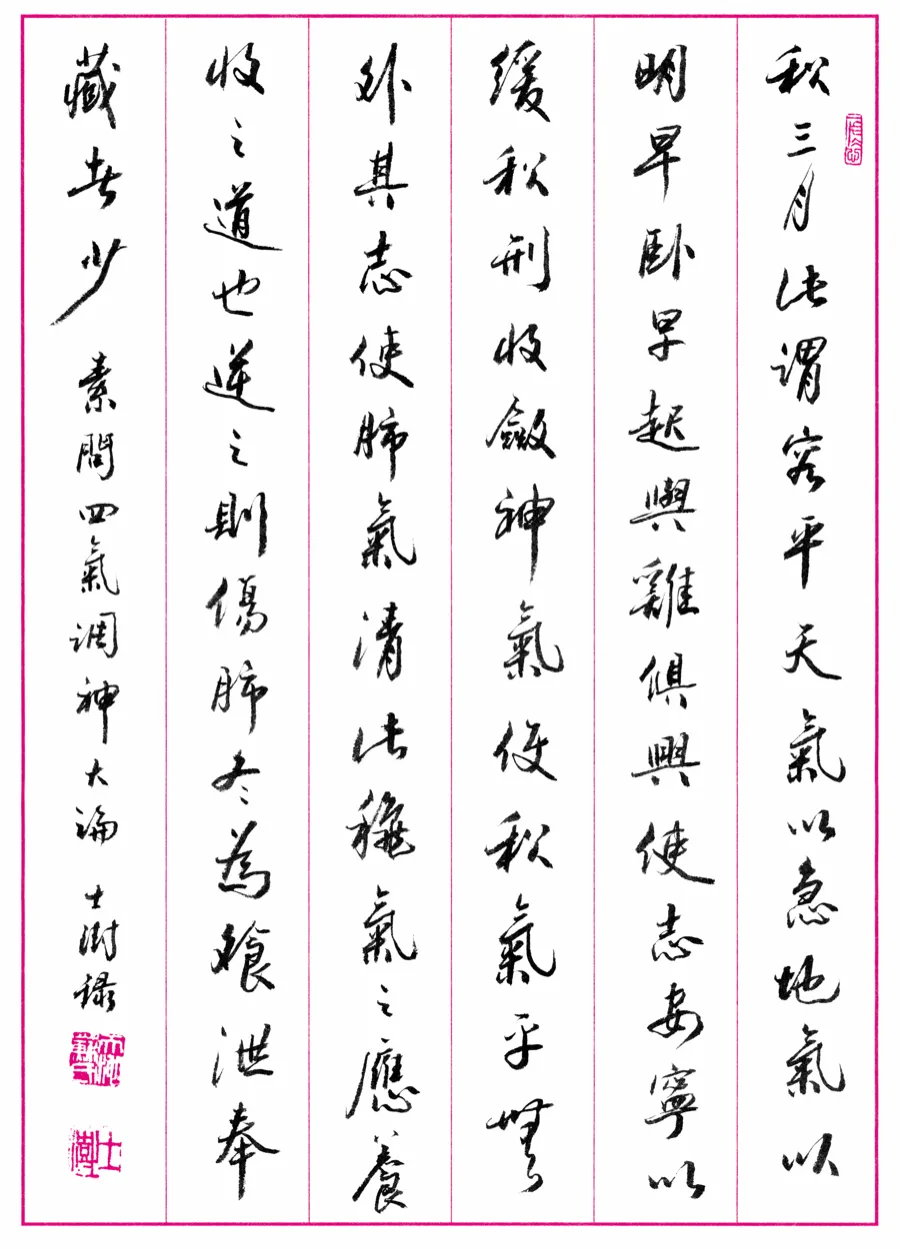 秋三月此謂容平天氣以急地氣以
明早卧早起與雞俱興使志安寧以
緩秋刑收斂神氣使秋氣平無
外其志使肺氣清此穐氣之應養
收之道也逆之則傷肺冬為飱泄奉
藏者少
素問四氣調神大論 士澍録
士澍